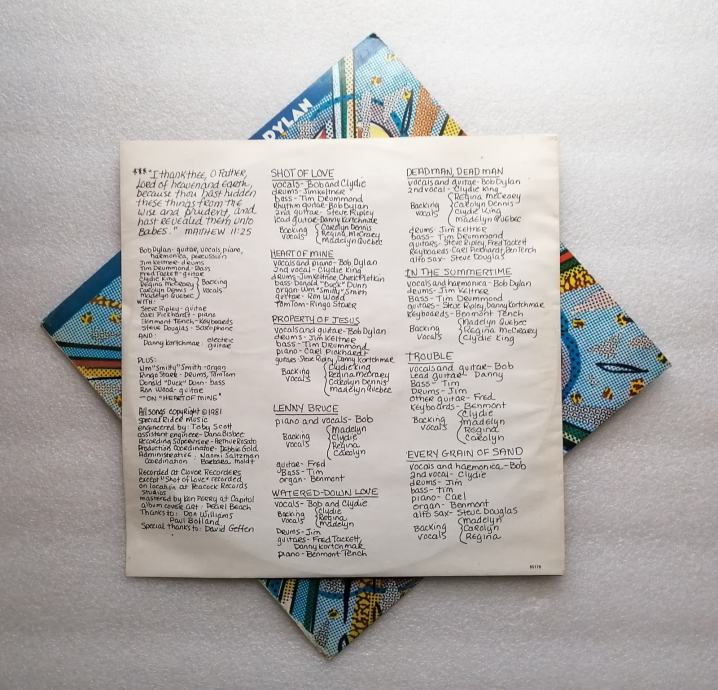 DYLAN
*** "I thank thee, O Father,
Lord of heaven and Earth,
because thou hast hidden
these things from the
wise and prudent, and
hast revealed them unto
Babes." MATTHEW 11:25
Bob Dylan - guitar, vocals, piano,
harmonica, percussion
Jim Keltner - drums
Tim Drummond - Bass
Fred Tackett - guitar
Clydie King
Regina McCreary
Carolyn Dennis
Madelyn Quebec
Backing
Vocals
WITH:
Steve Ripley - guitar
Carl Pickhardt - piano
Benmont Tench - Keyboards
Steve Douglas - saxophone
AND:
Danny Kortchmar electric
guitar
PLUS:
Wm "Smitty" Smith - organ
Ringo Starr - Drums, TomTom
Donald "Duck" Dunn - bass
Ron Wood - guitar
ON "HEART OF MINE"
All songs copyright © 1981
Special Rider Music
engineered by: Toby Scott
assistant engineer - Dana Bisbee
Recording Supervisor - Arthur Rosato
Production Coordinator - Debbie Gold
Administrative Naomi Saltzman
Coordination Barbara Moldt
Recorded at Clover Recorders
except "Shot of Love" recorded
on location at Peacock Records
Studios
mastered by Ken Perry at Capitol
album cover art - Pearl Beach
Thanks to: Don Williams
Paul Bolland
Special thanks to: David Geffen
SHOT OF LOVE
vocals - Bob and Clydie
drums - Jim Keltner
bass - Tim Drummond
Rhythm guitar - Bob Dylan
2nd guitar - Steve Ripley
lead guitar - Danny Kortchmar
Backing
vocals
Carolyn Dennis
Regina McCreary
Madelyn Quebec
HEART OF MINE
vocals and piano - Bob Dylan
2nd vocal - Clydie King
drums - Jim Keltner Chuck Plotkin
bass - Donald "Duck" Dunn
organ - Wm "Smitty" Smith
guitar - Ron Wood
TomTom - Ringo Starr
PROPERTY OF JESUS
vocals and guitar - Bob Dylan
drums - Jim Keltner
bass - Tim Drummond
piano - Carl Pickhardt
guitars - Steve Ripley, Danny Kortchmar
Backing
vocals
Clydie King
Regina McCreary
Carolyn Dennis
Madelyn Quebec
LENNY BRUCE
piano and vocals - Bob
Backing
vocals
Madelyn
Clydie
Regina
Carolyn
guitar - Fred
Bass - Tim
organ - Benmont
WATERED-DOWN LOVE
vocals - Bob and Clydie
Backing
vocals
Clydie
Regina
Madelyn
Drums - Jim
guitars - Fred Tackett,
Danny Kortchmar
piano - Benmont Tench
DEAD MAN, DEAD MAN
vocals and guitar - Bob Dylan
2nd vocal - Clydie King
Backing
vocals
Regina McCreary
Carolyn Dennis
Clydie King
Madelyn Quebec
drums - Jim Keltner
bass - Tim Drummond
guitars - Steve Ripley, Fred Tackett
Keyboards - Carl Pickhardt, Ben Tench
alto sax - Steve Douglas
IN THE SUMMERTIME
vocals and harmonica - Bob Dylan
drums - Jim Keltner
Bass - Tim Drummond
guitars - Steve Ripley, Danny Kortchmar
Keyboards - Benmont Tench
Backing
vocals
Madelyn Quebec
Regina McCreary
Clydie King
TROUBLE
vocals and guitar - Bob
Lead guitar - Danny
Bass - Tim
Drums - Jim
other guitar - Fred
Keyboards - Benmont
Backing
vocals
Clydie
Madelyn
Regina
Carolyn
EVERY GRAIN OF SAND
vocals and harmonica - Bob
2nd vocal - Clydie
drums - Jim
bass - Tim
piano - Carl
organ - Benmont
alto sax - Steve Douglas
Backing
vocals
Madelyn
Carolyn
Regina